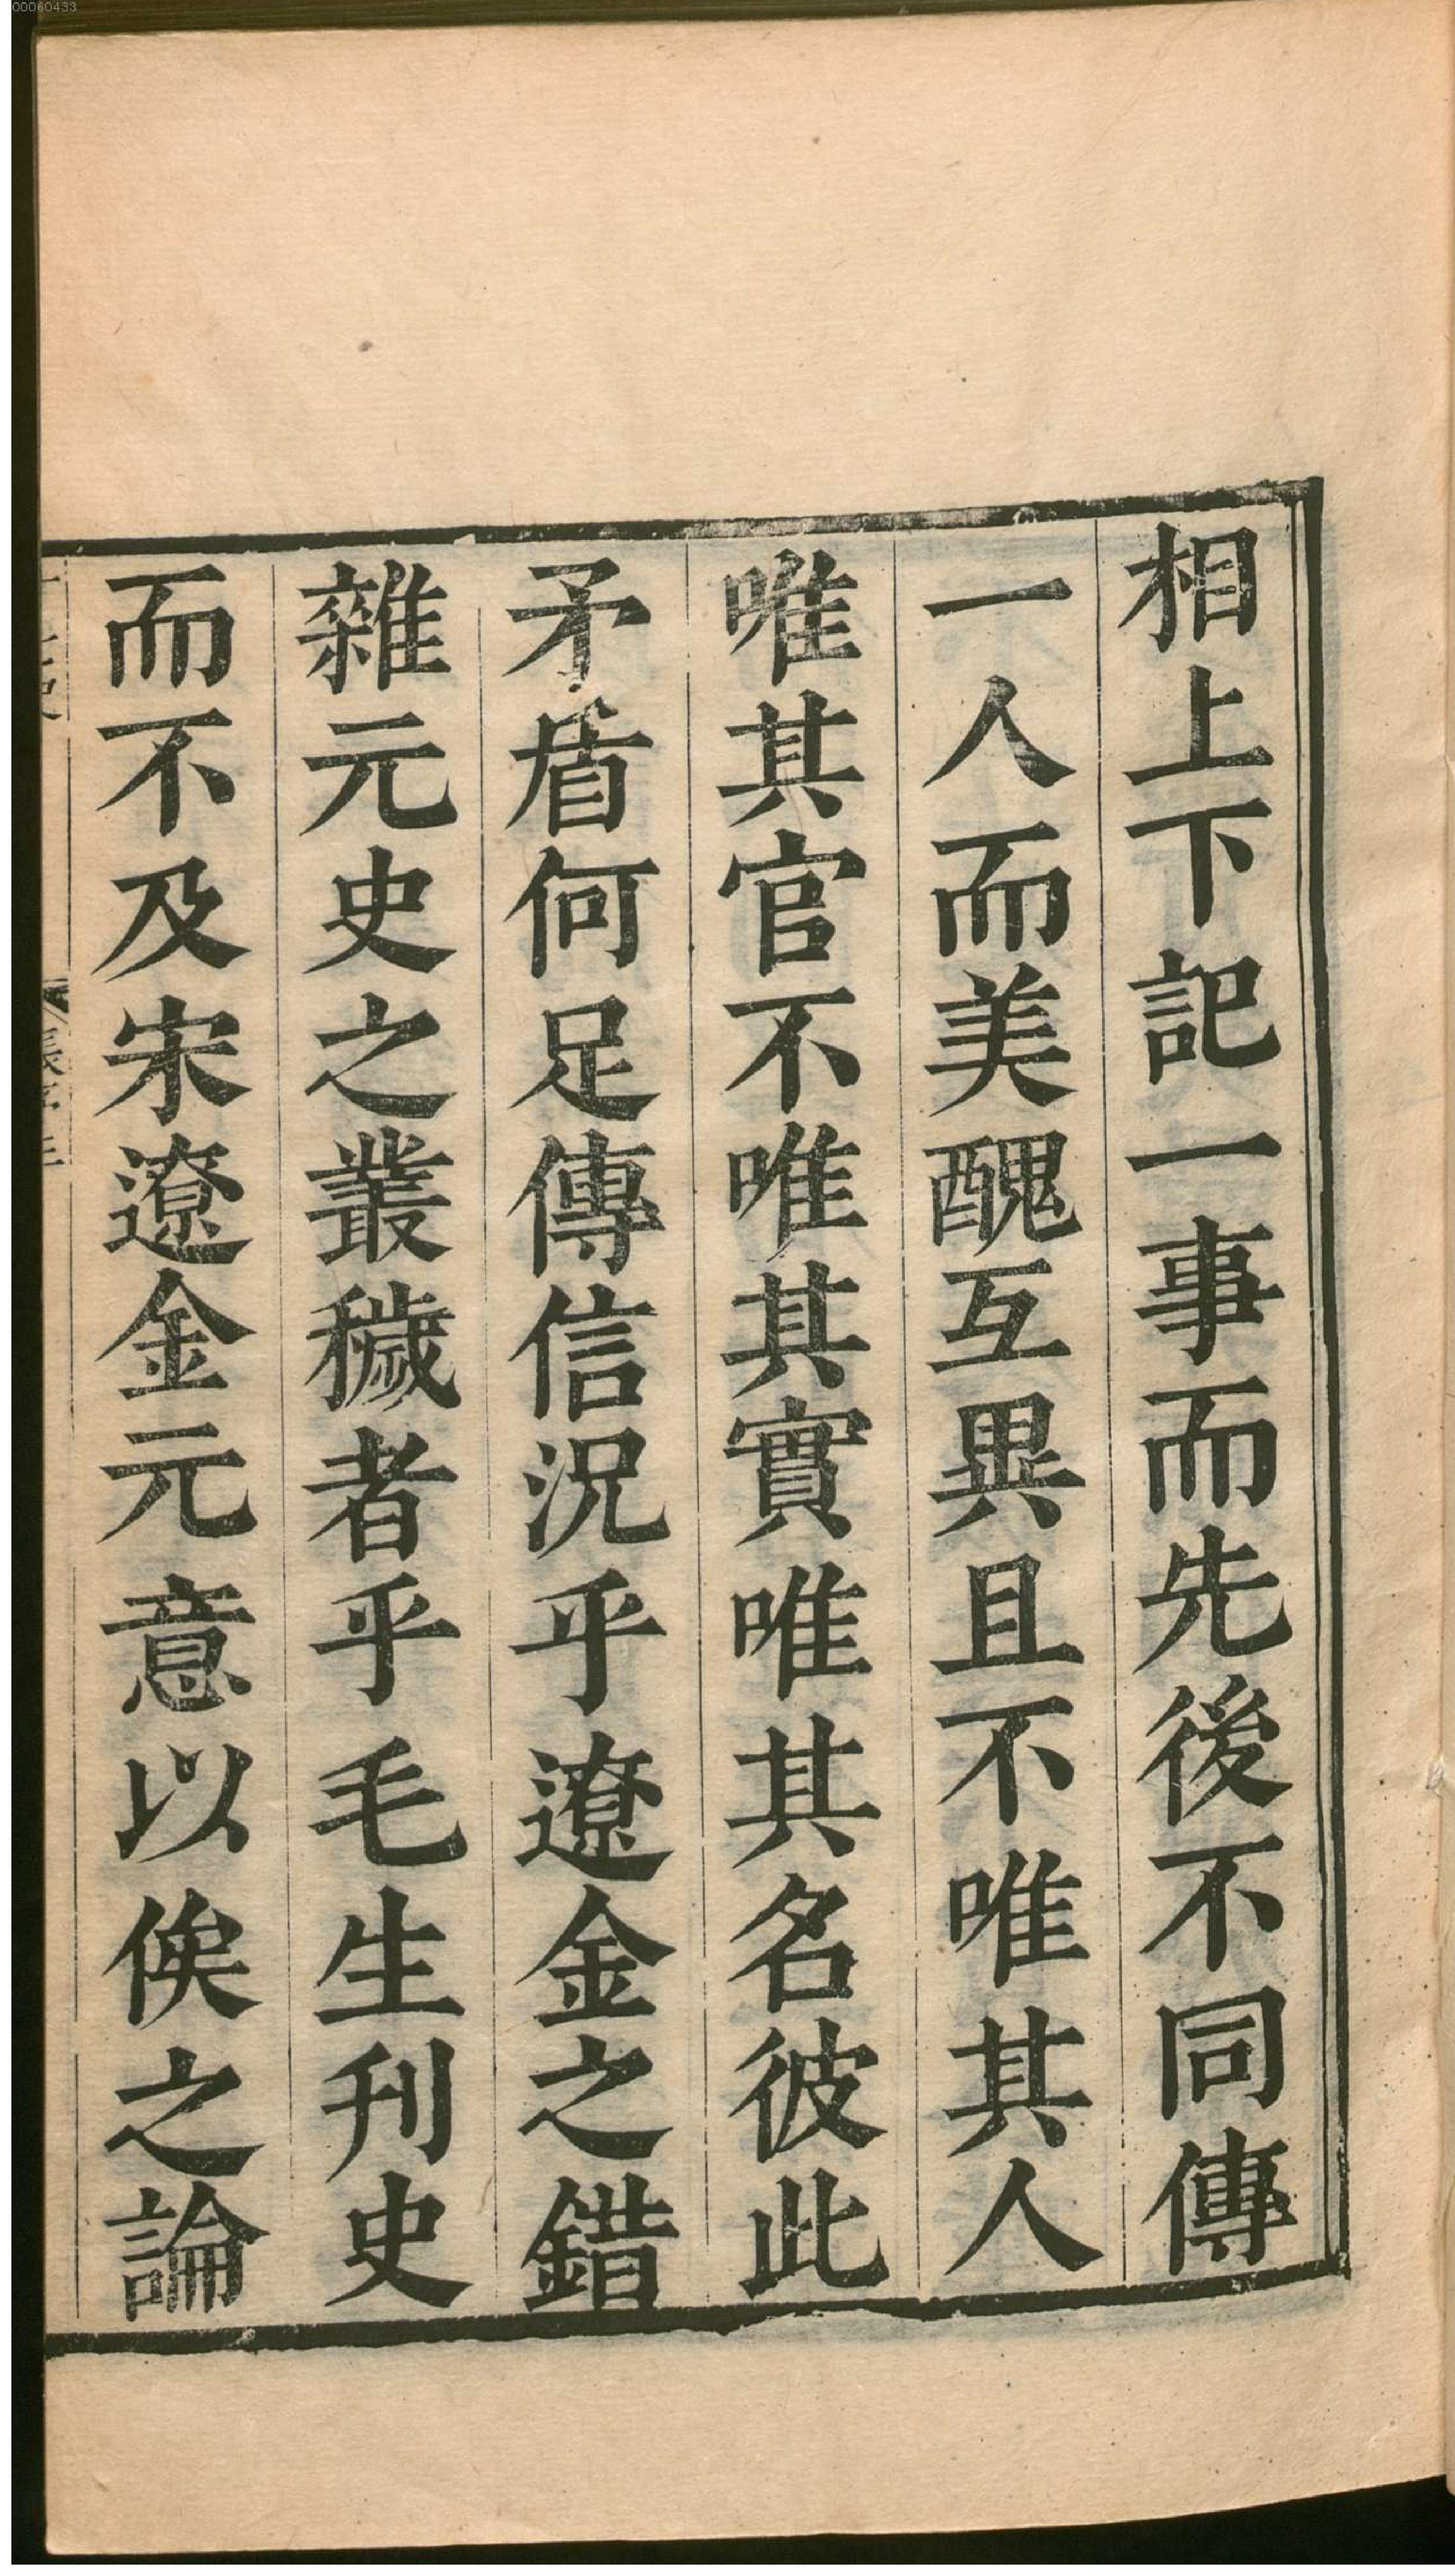 00060433
相上下記一事而先後不同傳
一人而美醜互異且不唯其人
唯其官不唯其實唯其名彼此
矛盾何足傳信況乎遼金之錯
雜元史之叢穢者乎毛生刊史
而不及宋遼金元意以俟之論